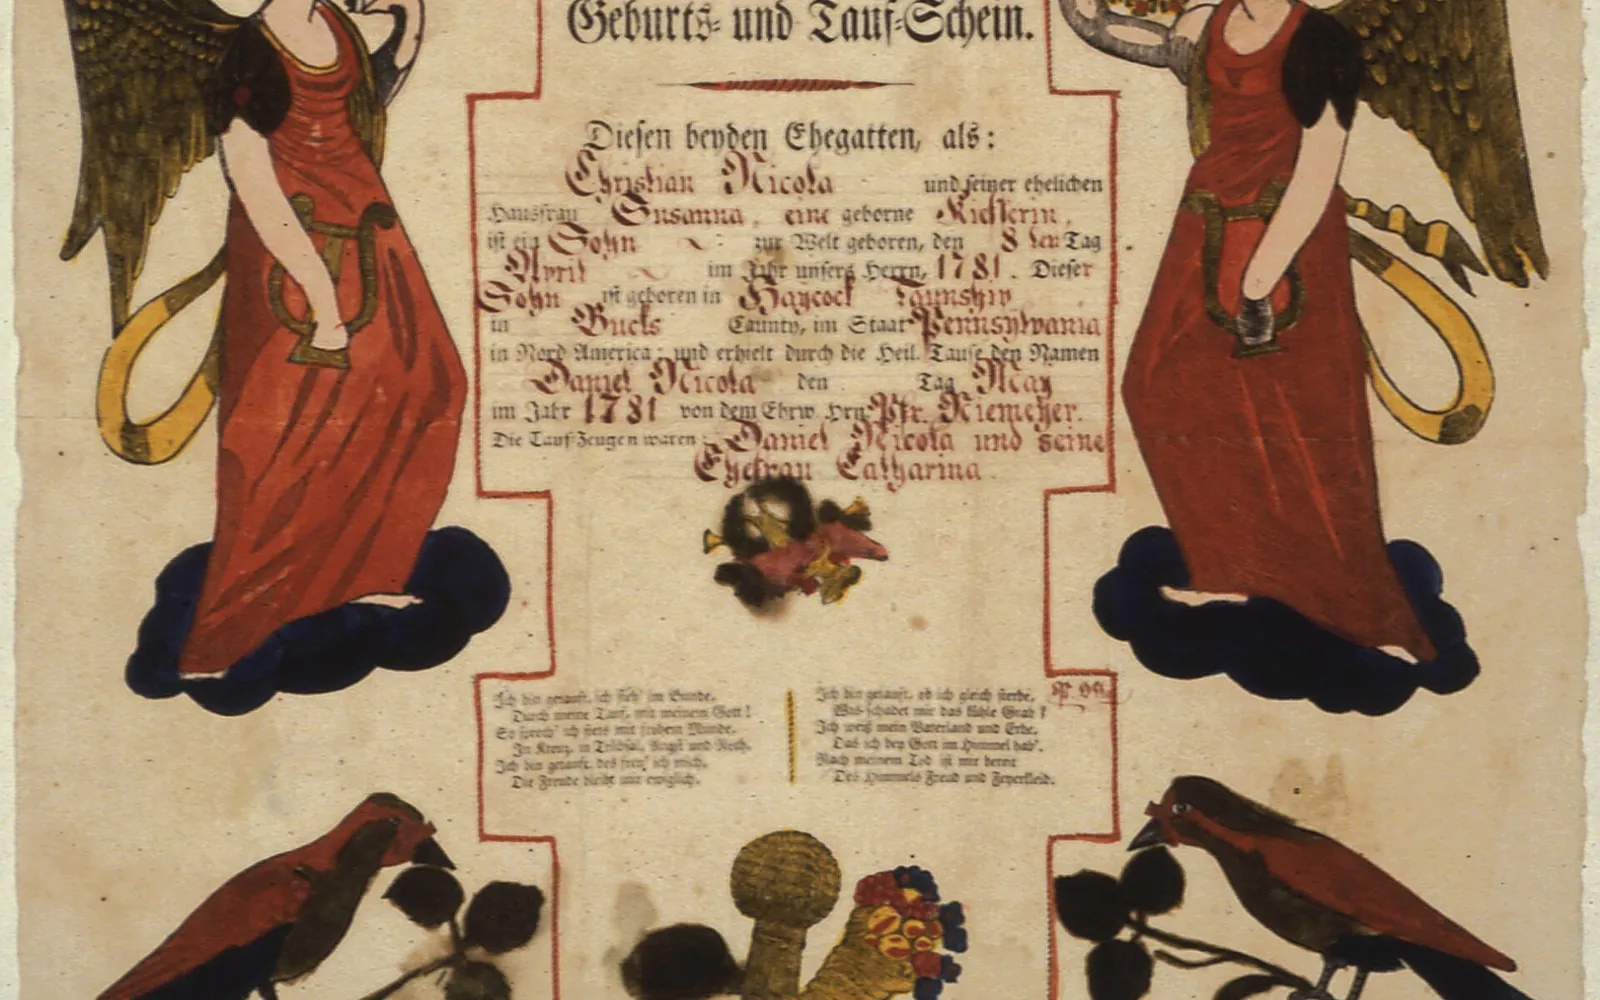 Geburts- und Tauf-Schein.
Diesen beyden Ehegatten, als:
Christian Nicola und seiner ehelichen
Hausfrau Susanna, eine geborne
ist ein Sohn zur Welt geboren, den 8 ten Tag
April im Jahr unsers Herrn, 1781. Dieser
Sohn ist geboren in Haycock Taunship
in Bucks Caunty, im Staat Pennsylvania
in Nord America; und erhielt durch die Heil. Taufe den Namen
Daniel Nicola den Tag May
im Jahr 1781 von dem Ehrw. Hrn. Pfr. Niemeyer.
Die Tauf-Zeugen waren: Daniel Nicola und seine
Ehefrau Catharina.
Ich bin getauft, ich steh' im Bunde,
Durch meine Tauf, mit meinem Gott!
So sprech' ich stets mit frohem Munde,
In Kreuz, in Trübsal, Angst und Noth.
Ich bin getauft, des freu' ich mich,
Die Freude bleibt mir ewiglich.
Ich bin getauft, ob ich gleich sterbe,
Was schadet mir das kühle Grab?
Ich weiß mein Vaterland und Erbe,
Das ich bey Gott im Himmel hab'.
Nach meinem Tod ist mir bereit
Des Himmels Freud und Feyerkleid.